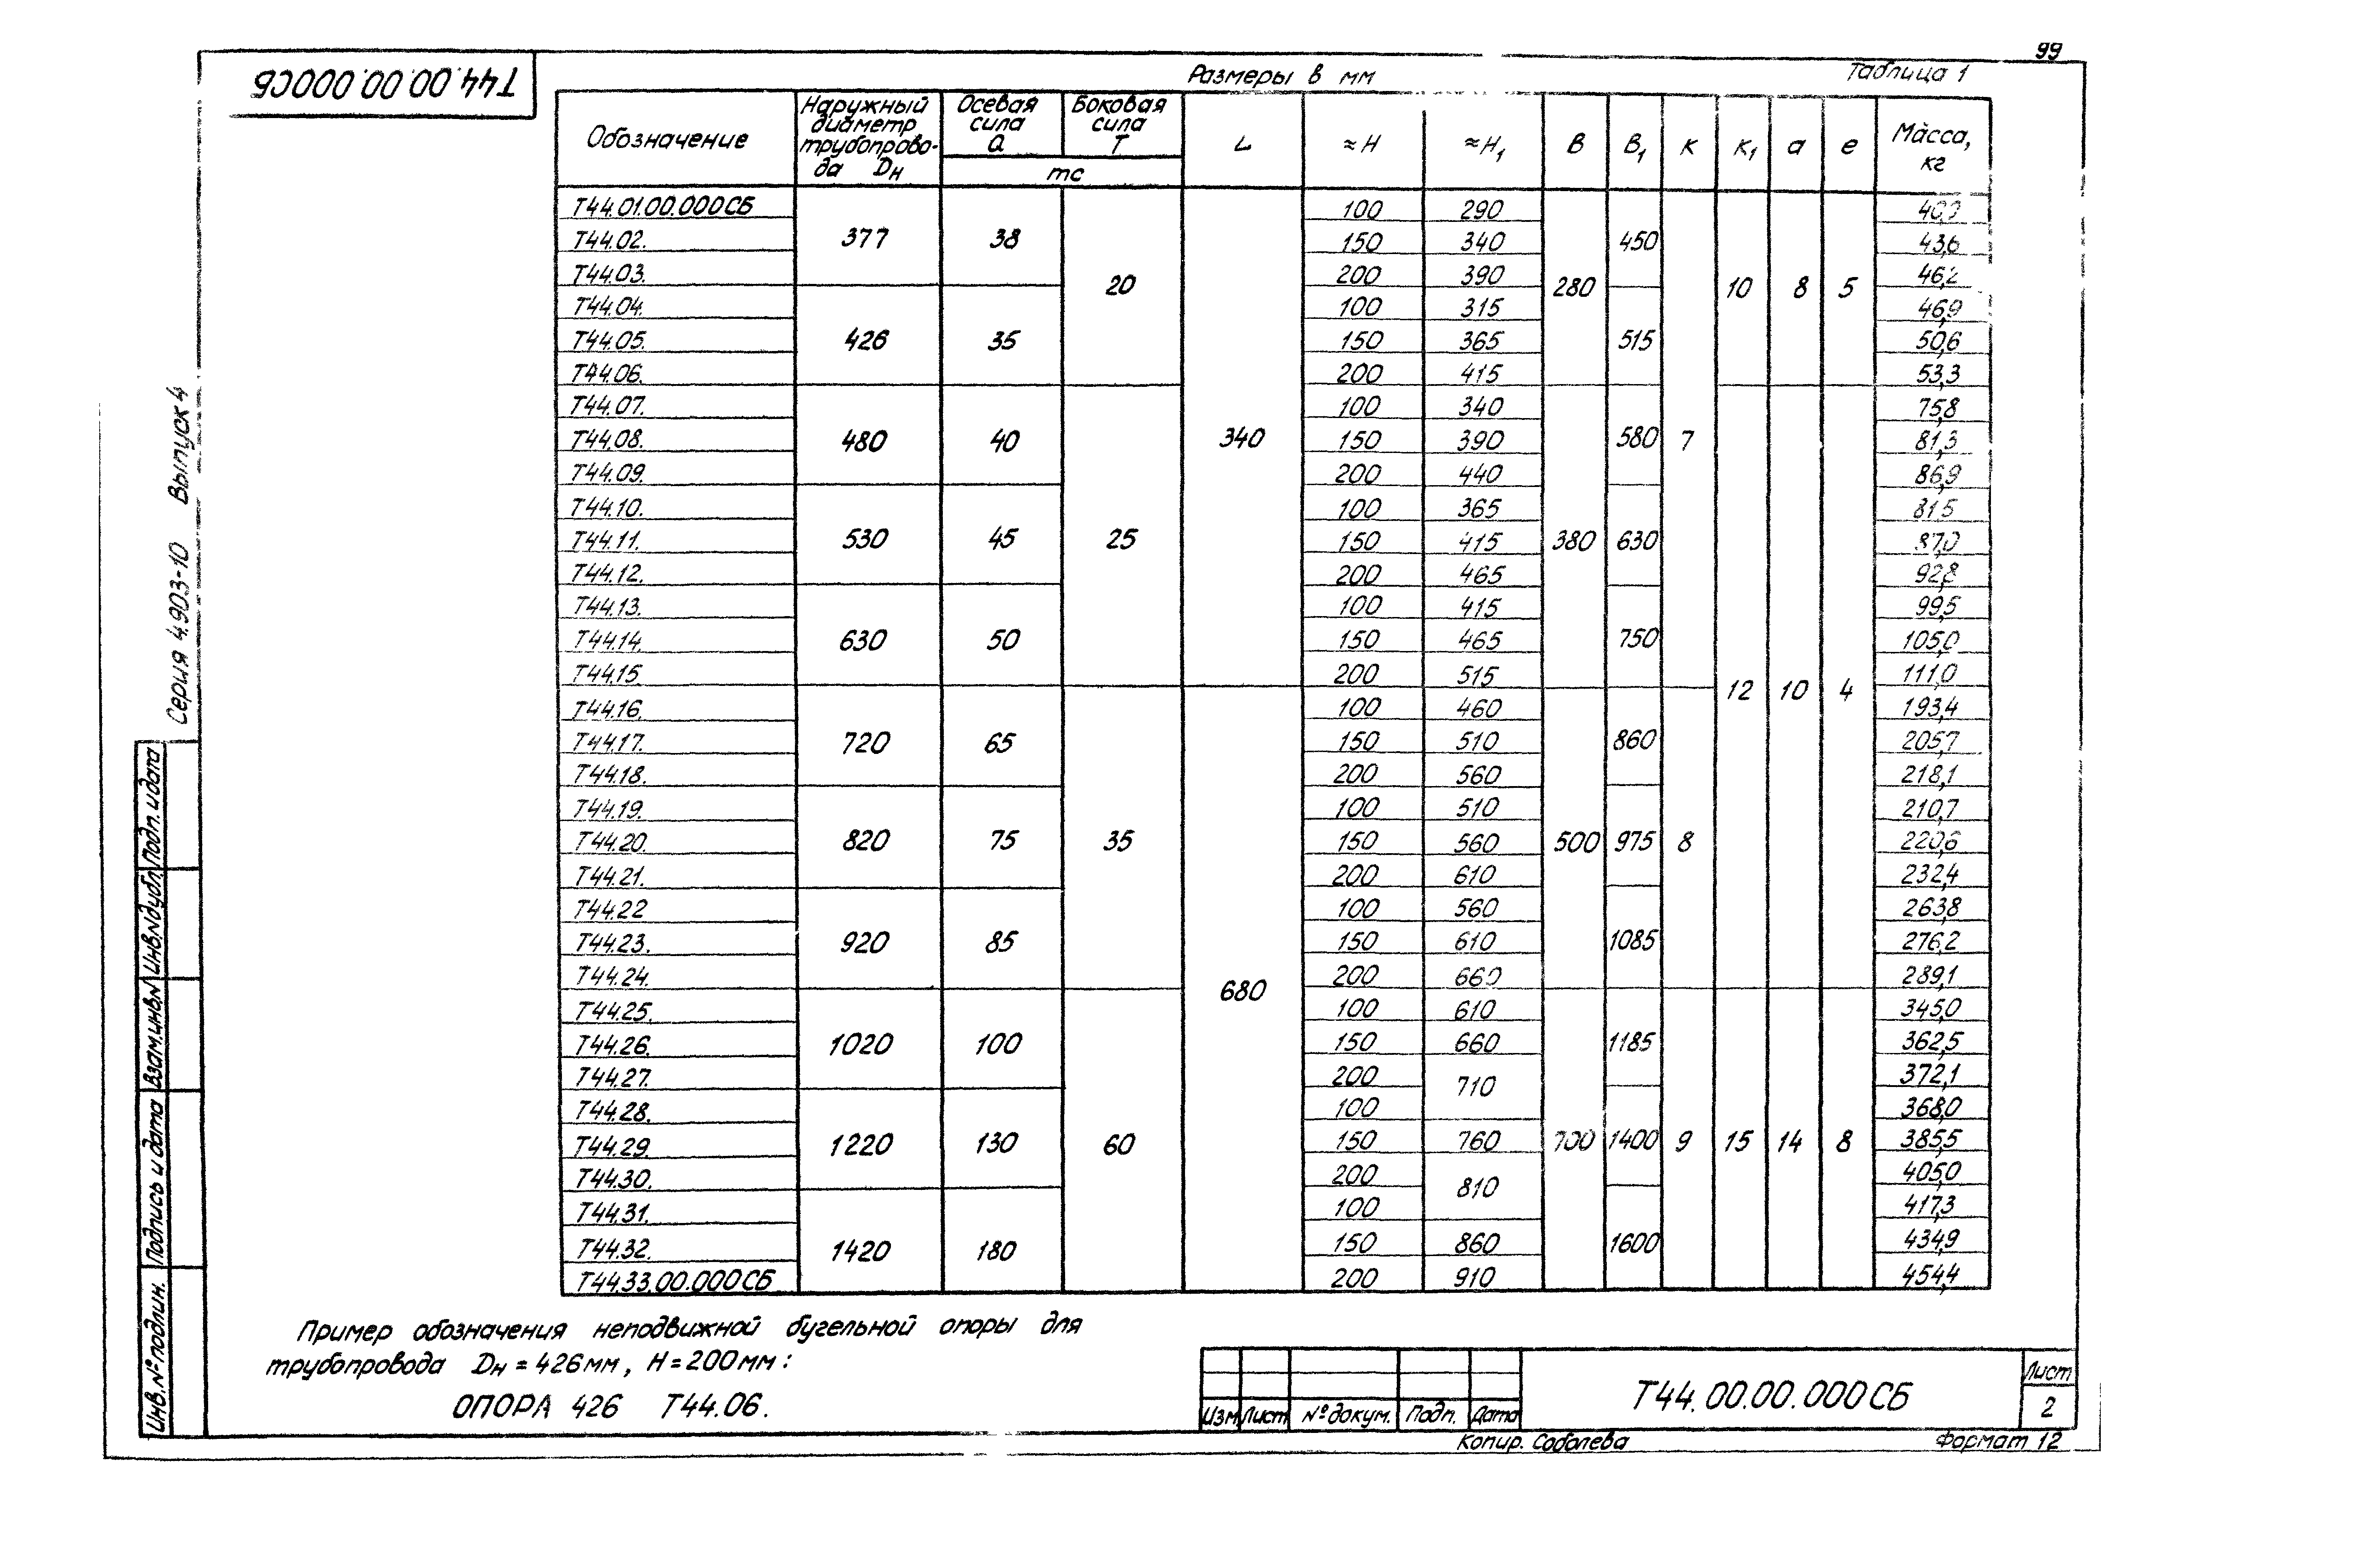 99
Т44.00.00.000СБ
Размеры в мм
Таблица 1
Обозначение | Наружный диаметр трубопрово-да Dн | Осевая сила Q | Боковая сила T | L | ≈H | ≈H₁ | B | B₁ | K | K₁ | a | e | Масса, кг
тс
Т44.01.00.000СБ | 377 | 38 | 20 | 340 | 100 | 290 | 280 | 450 | 7 | 10 | 8 | 5
Т44.02. | 150 | 340 | 43,6
Т44.03. | 200 | 390 | 46,2
Т44.04. | 426 | 35 | 100 | 315 | 515 | 46,9
Т44.05. | 150 | 365 | 50,6
Т44.06. | 200 | 415 | 53,3
Т44.07. | 480 | 40 | 25 | 100 | 340 | 380 | 580 | 12 | 10 | 4 | 75,8
Т44.08. | 150 | 390 | 81,3
Т44.09. | 200 | 440 | 86,9
Т44.10. | 530 | 45 | 100 | 365 | 630 | 81,5
Т44.11. | 150 | 415 | 87,0
Т44.12. | 200 | 465 | 92,8
Т44.13. | 630 | 50 | 100 | 415 | 750 | 99,5
Т44.14. | 150 | 465 | 105,0
Т44.15 | 200 | 515 | 111,0
Т44.16. | 720 | 65 | 35 | 680 | 100 | 460 | 500 | 860 | 8 | 193,4
Т44.17. | 150 | 510 | 205,7
Т44.18. | 200 | 560 | 218,1
Т44.19. | 820 | 75 | 100 | 510 | 975 | 210,7
Т44.20. | 150 | 560 | 220,6
Т44.21. | 200 | 610 | 232,4
Т44.22 | 920 | 85 | 100 | 560 | 1085 | 263,8
Т44.23. | 150 | 610 | 276,2
Т44.24. | 200 | 660 | 289,1
Т44.25. | 1020 | 100 | 60 | 100 | 610 | 700 | 1185 | 9 | 15 | 14 | 8 | 345,0
Т44.26. | 150 | 660 | 362,5
Т44.27. | 200 | 710 | 372,1
Т44.28. | 1220 | 130 | 100 | 1400 | 368,0
Т44.29. | 150 | 760 | 385,5
Т44.30. | 200 | 810 | 405,0
Т44.31. | 1420 | 180 | 100 | 1600 | 417,3
Т44.32. | 150 | 860 | 434,9
Т44.33.00.000СБ | 200 | 910 | 454,4
Пример обозначения неподвижной бугельной опоры для
трубопровода Dн = 426мм, H = 200мм:
ОПОРА 426 Т44.06.
Серия 4.903-10 Выпуск 4
Инв.№подлин. Подпись и дата Взам.инв.№ Инв.№дубл. Подп. и дата
Изм Лист №докум. Подп. Дата
Т44.00.00.000СБ
Лист
2
Копир. Соболева
Формат 12